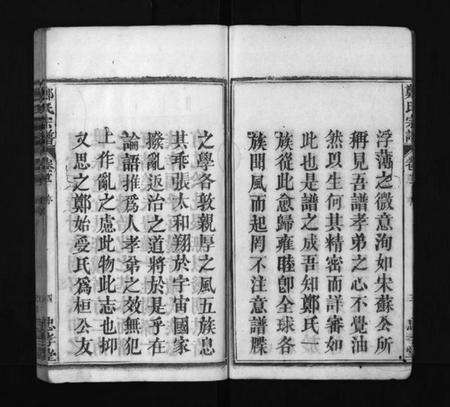 鄭氏宗譜
浮薄之微意洵如朱蘇公所
稱見吾譜孝弟之心不覺油
然以生何其精密而詳審如
此也是譜之成吾知鄭氏一
族從此愈歸雍睦卽全球各
族聞風而起罔不注意譜牒
之學各敦親厚之風五族息
其乖張太和翔於宇宙國家
撥亂返治之道將於是乎在
論語推爲人孝弟之效無犯
上作亂之處此物此志也抑
又思之鄭始受氏爲桓公友
鄭氏宗譜
四